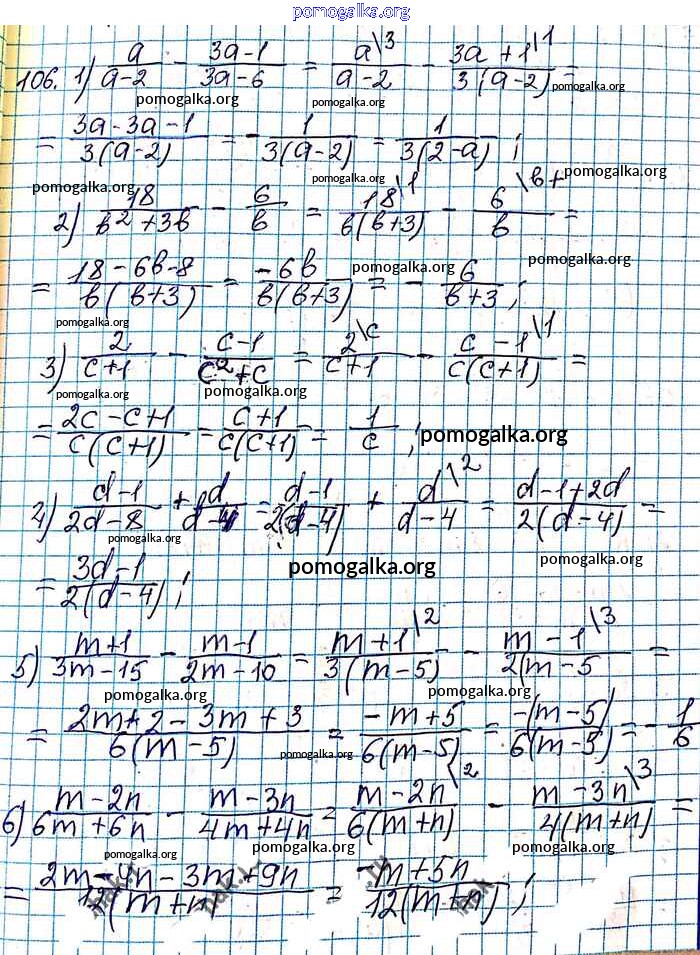 pomogalka.org
106. 1) a/(a-2) - (3a-1)/(3a-6) = a\3/(a-2) - (3a+1\1)/(3(a-2)) =
pomogalka.org pomogalka.org pomogalka.org
= (3a-3a-1)/(3(a-2)) = - 1/(3(a-2)) = 1/(3(2-a)) ;
pomogalka.org pomogalka.org pomogalka.org
2) 18/(в²+3в) - 6/в = 18\1/(в(в+3)) - 6\в+/в =
= (18-6в-8)/(в(в+3)) = -6в/(в(в+3)) = - 6/(в+3) ;
pomogalka.org pomogalka.org
pomogalka.org
3) 2/(c+1) - (c-1)/(c²+c) = 2\c/(c+1) - (c-1\1)/(c(c+1)) =
pomogalka.org pomogalka.org
= (2c-c+1)/(c(c+1)) = (c+1)/(c(c+1)) = 1/c ;
pomogalka.org
4) (d-1)/(2d-8) + d/(d-4) = (d-1)/(2(d-4)) + d\2/(d-4) = (d-1+2d)/(2(d-4)) =
pomogalka.org pomogalka.org pomogalka.org
= (3d-1)/(2(d-4)) ;
5) (m+1)/(3m-15) - (m-1)/(2m-10) = (m+1\2)/(3(m-5)) - (m-1\3)/(2(m-5 =
pomogalka.org pomogalka.org
= (2m+2-3m+3)/(6(m-5)) = (-m+5)/(6(m-5)) = -(m-5)/(6(m-5)) = - 1/6
pomogalka.org
6) (m-2n)/(6m+6n) - (m-3n)/(4m+4n) = (m-2n\2)/(6(m+n)) - (m-3n\3)/(4(m+n)) =
pomogalka.org pomogalka.org
= (2m-4n-3m+9n)/(12(m+n)) = (-m+5n)/(12(m+n)) ;